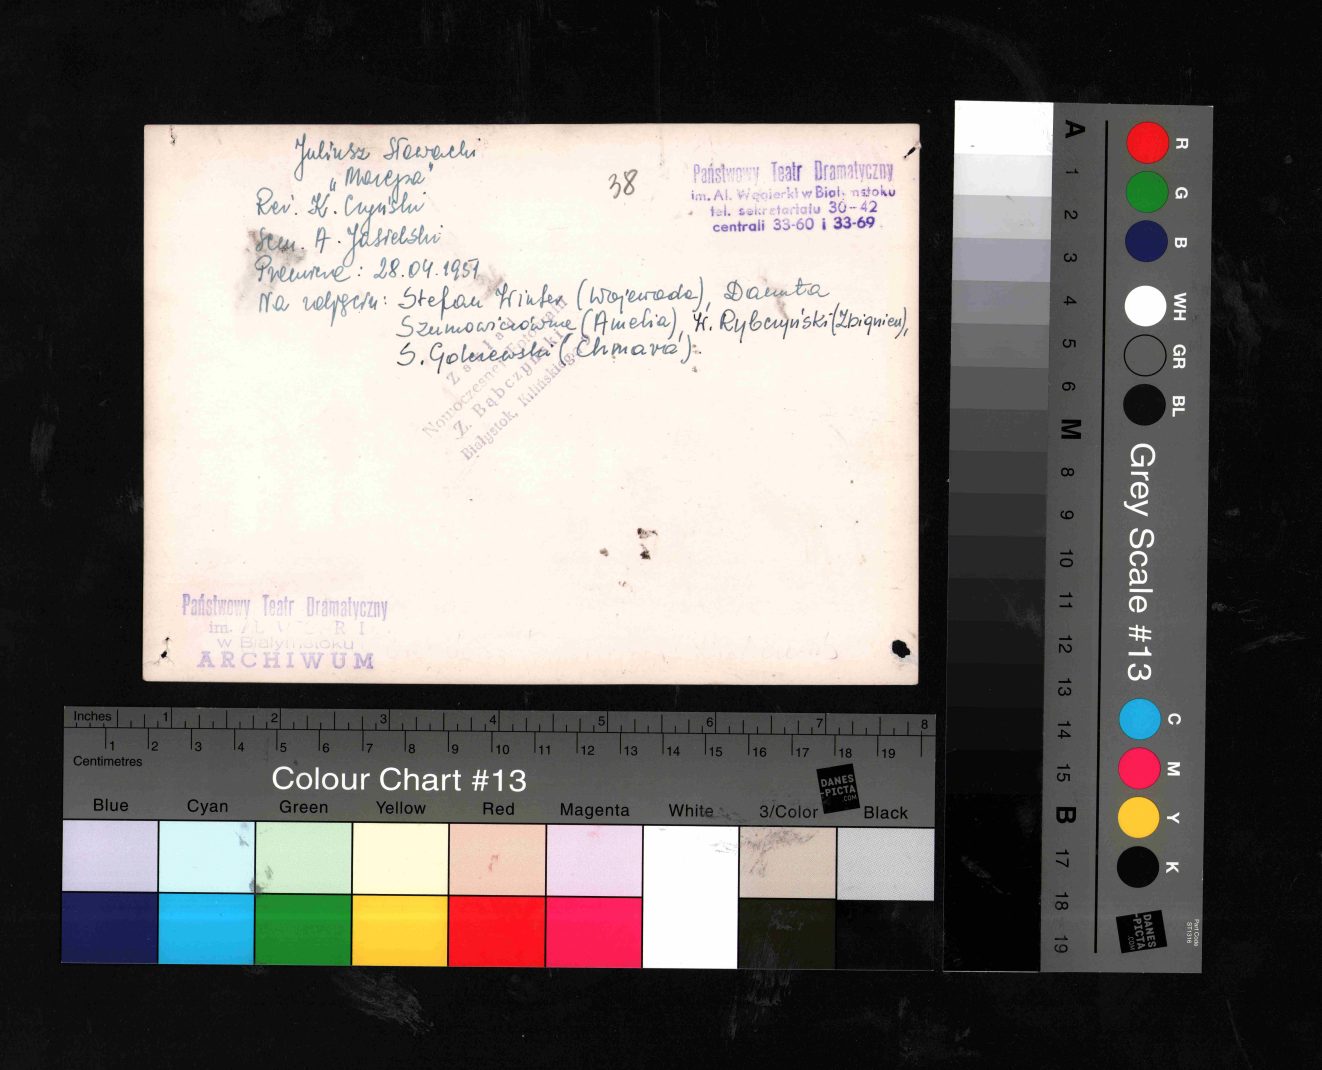 Juliusz Słowacki
"Mazepa"
Reż. K. Czyński
Scen. A. Jasielski
Premiera: 28.04.1951
Na zdjęciu: Stefan Winter (Wojewoda), Danuta
Szumowiczówna (Amelia), H. Rybczyński (Zbigniew),
S. (Chmara).
38
Państwowy Teatr Dramatyczny
im. Al. Węgierki w Białymstoku
tel. sekretariatu 30-42
centrali 33-60 i 33-69
Zakład
Nowoczesnej Fotografii
Z. Bąbczyński
Białystok, Kilińskiego
Państwowy Teatr Dramatyczny
im.
w Białymstoku
ARCHIWUM
Inches 1 2 3 4 5 6 7 8
1 2 3 4 5 6 7 8 9 10 11 12 13 14 15 16 17 18 19
Centimetres
Colour Chart #13
DANES
-PICTA
.COM
Blue Cyan Green Yellow Red Magenta White 3/Color Black
A 1 2 3 4 5 6 M 8 9 10 11 12 13 14 15 B 17 18 19
R G B WH GR BL
Grey Scale #13
C M Y K
DANES
-PICTA
.COM
Part Code
ST1316